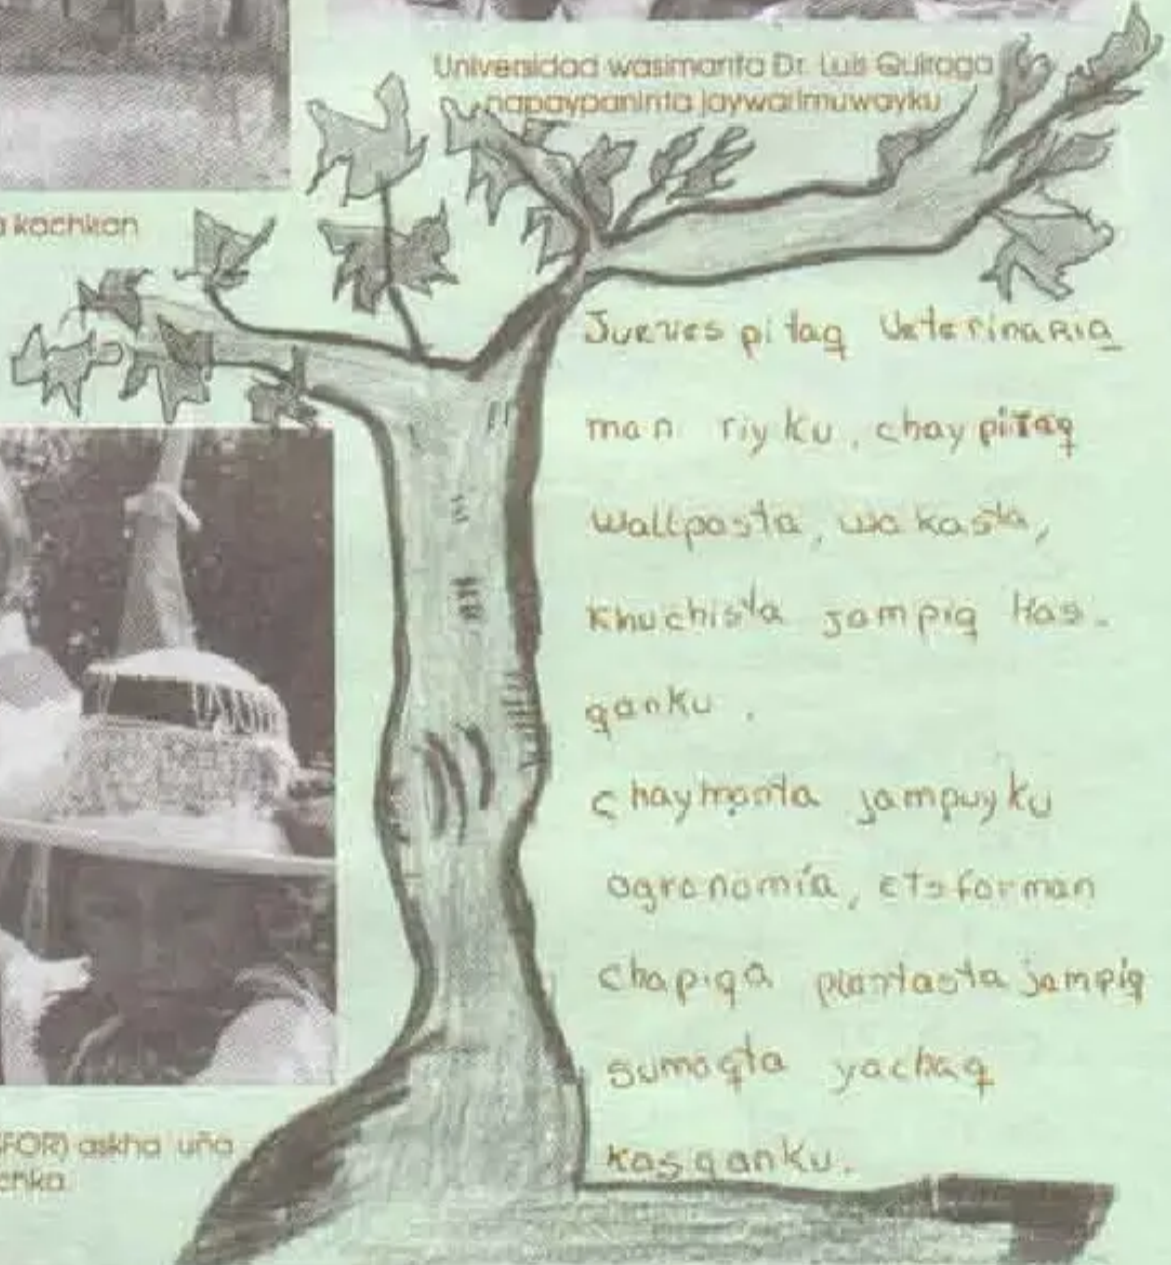 Universidad wasimanta Dr. Luis Quiroga
napaypaninta jaywarimuwayku
kachkan
Juevespitaq Veterinaria
man riyku, chaypitaq
wallpasta, wakasta,
khuchista jampiq kas-
qanku.
chaymanta jampuyku
agronomía, ETSforman
chapiqa plantasta jampiq
sumaqta yachaq
kasqanku.
SFOR) askha uña
chka